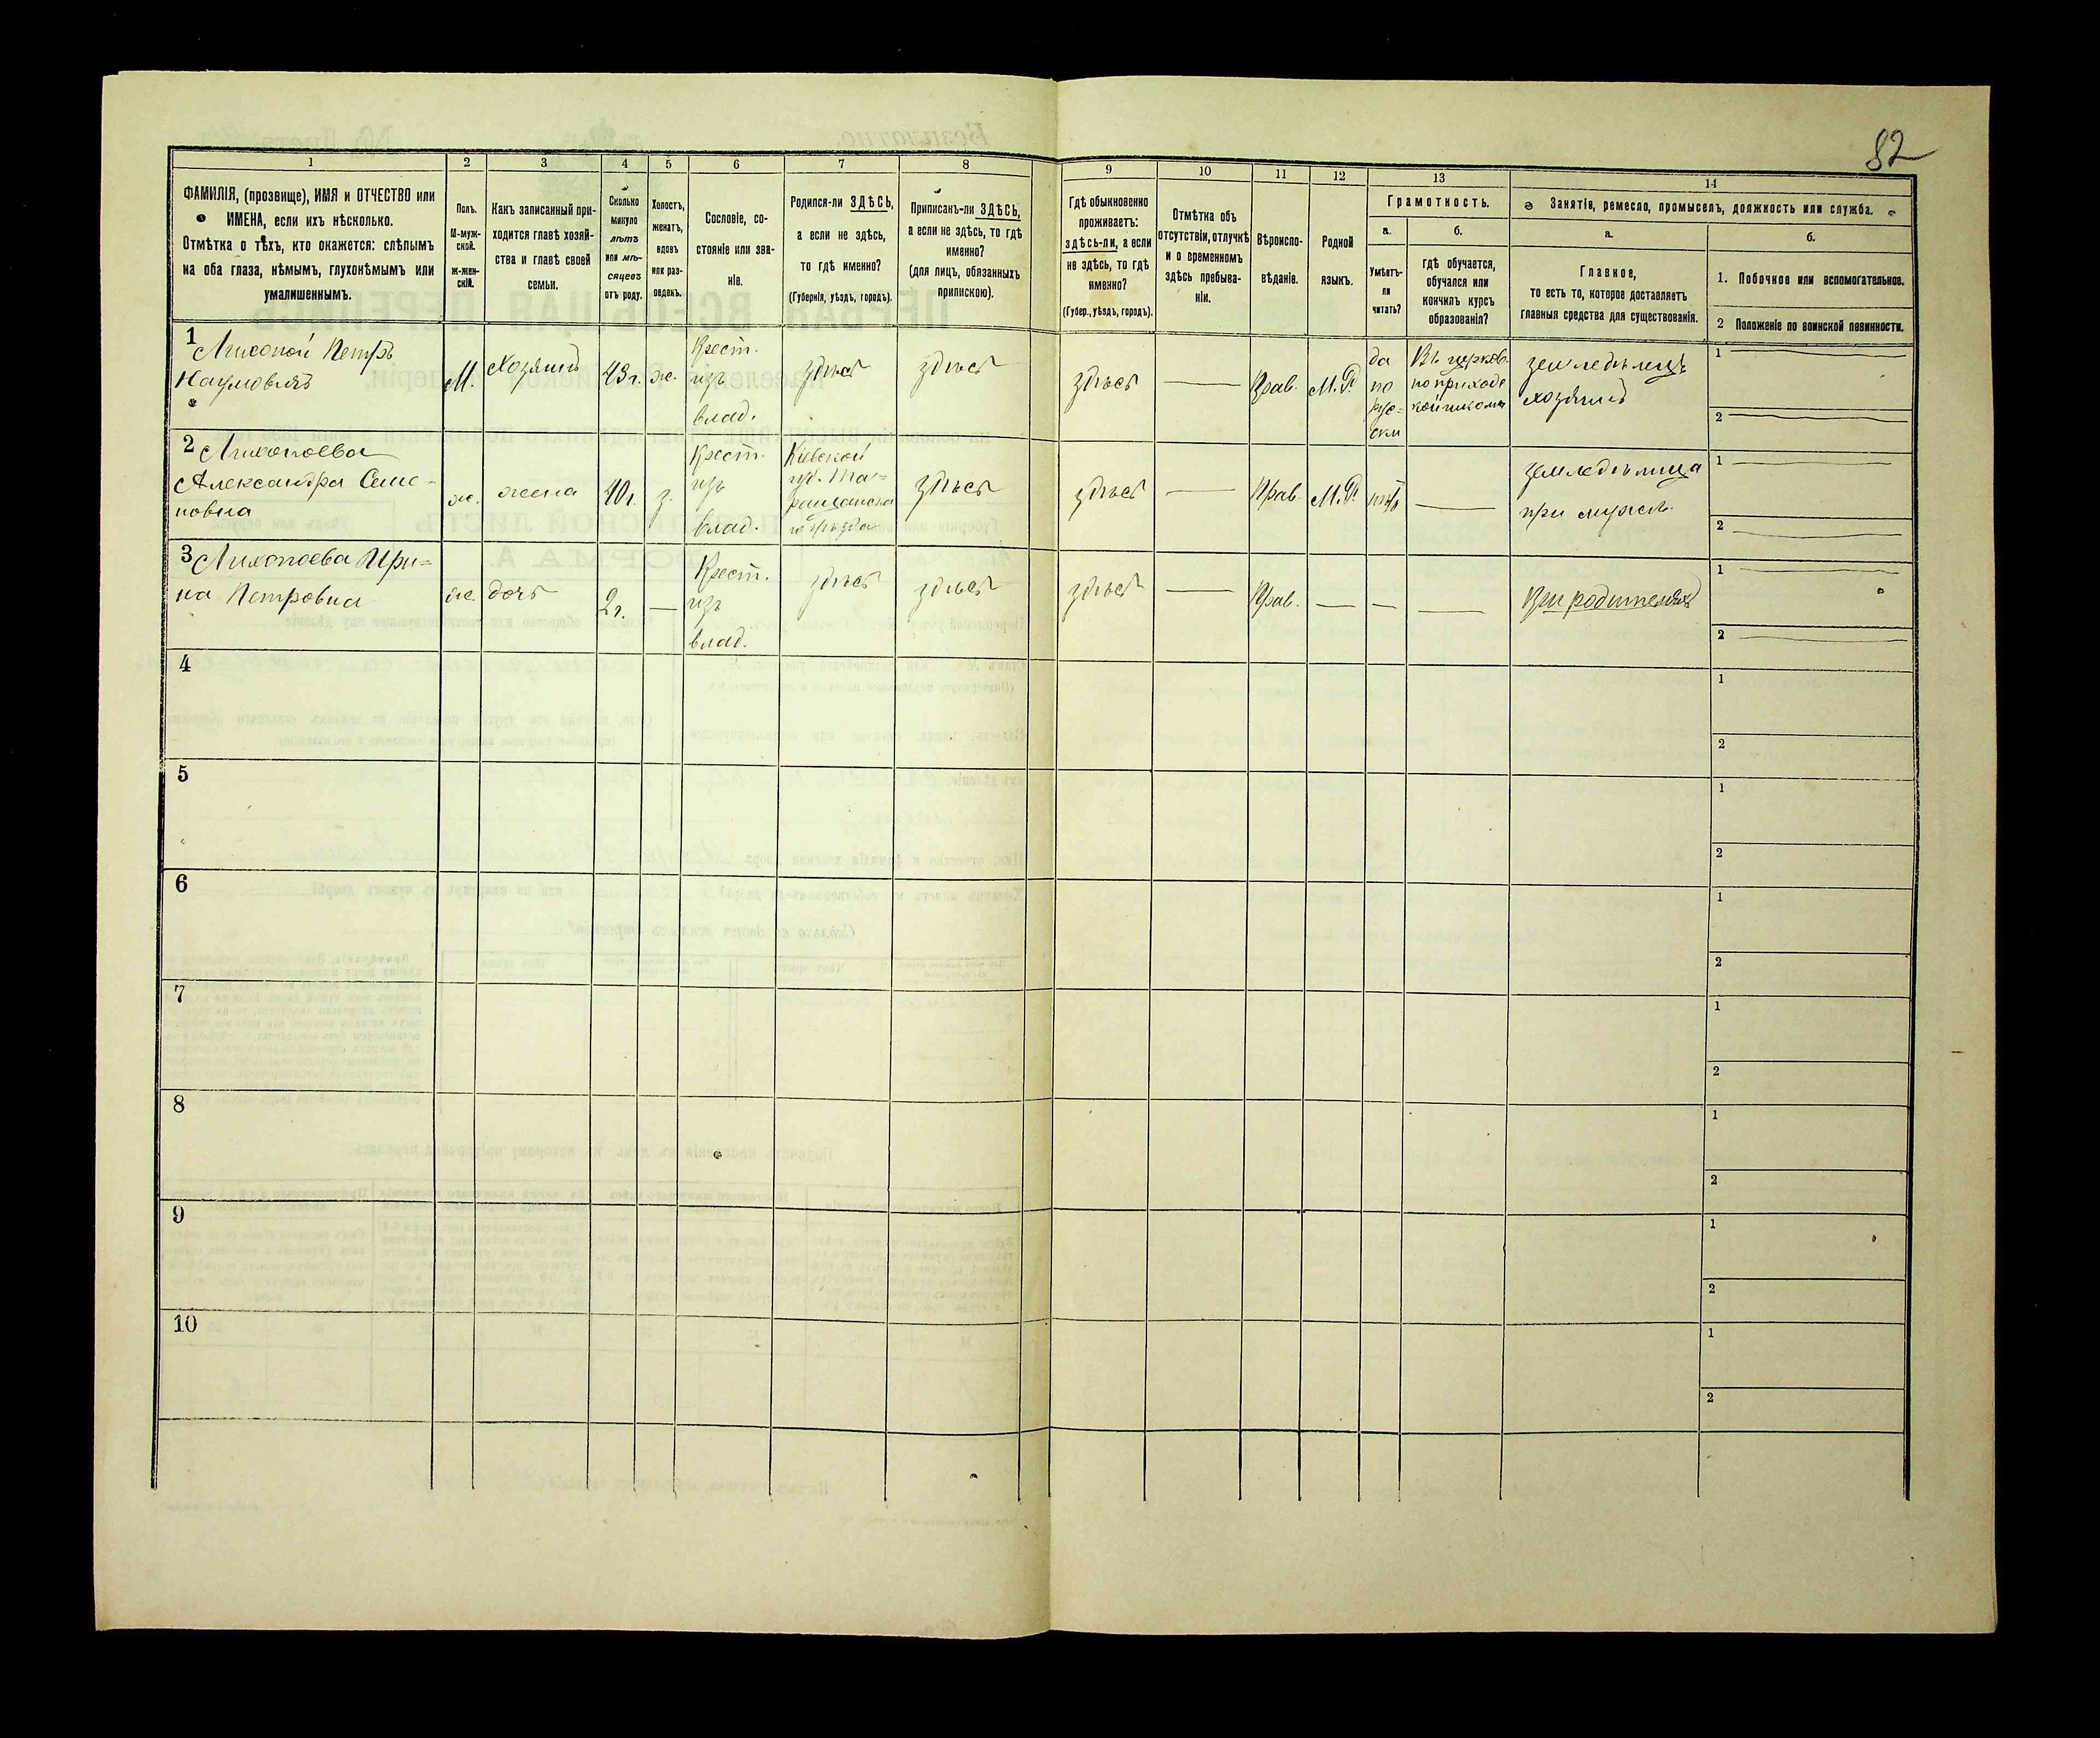 82
1
2
3
4
5
6
7
8
9
10
11
12
13
14
ФАМИЛІЯ, (прозвище), ИМЯ и ОТЧЕСТВО или
ИМЕНА, если ихъ нѣсколько.
Отмѣтка о тѣхъ, кто окажется: слѣпымъ
на оба глаза, нѣмымъ, глухонѣмымъ или
умалишеннымъ.
Полъ.
М-муж-
ской.
ж-жен-
скій.
Какъ записанный при-
ходится главѣ хозяй-
ства и главѣ своей
семьи.
Сколько
минуло
лѣтъ
или мѣ-
сяцевъ
отъ роду.
Холостъ,
женатъ,
вдовъ
или раз-
веденъ.
Сословіе, со-
стояніе или зва-
ніе.
Родился-ли ЗДѢСЬ,
а если не здѣсь,
то гдѣ именно?
(Губернія, уѣздъ, городъ).
Приписанъ-ли ЗДѢСЬ,
а если не здѣсь, то гдѣ
именно?
(для лицъ, обязанныхъ
припискою).
Гдѣ обыкновенно
проживаетъ:
здѣсь-ли, а если
не здѣсь, то гдѣ
именно?
(Губер., уѣздъ, городъ).
Отмѣтка объ
отсутствіи, отлучкѣ
и о временномъ
здѣсь пребыва-
ніи.
Вѣроиспо-
вѣданіе.
Родной
языкъ.
Грамотность.
а.
Умѣетъ-
ли
читать?
б.
гдѣ обучается,
обучался или
кончилъ курсъ
образованія?
Занятіе, ремесло, промыселъ, должность или служба.
а.
Главное,
то есть то, которое доставляетъ
главныя средства для существованія.
б.
1. Побочное или вспомогательное.
2 Положеніе по воинской повинности.
1
Петръ
Наумовичъ
М.
Хозяинъ
43 г.
ж.
Крест.
изъ
влад.
здѣсь
здѣсь
здѣсь
Прав.
М.Р.
да
по
рус-
ски
Въ церков-
но приход
ской школѣ
земледѣлецъ
хозяинъ
1
2
2
Александра Семе-
новна
ж.
жена
40 г.
з.
Крест.
изъ
влад.
Кіевской
губ. Та-
ращанска
го уѣзда
здѣсь
здѣсь
Прав.
М.Р.
нѣтъ
земледѣлица
при мужѣ.
1
2
3
Ири-
на Петровна
ж.
дочь
2 г.
Крест.
изъ
влад.
здѣсь
здѣсь
здѣсь
Прав.
При родителяхъ
1
2
4
1
2
5
1
2
6
1
2
7
1
2
8
1
2
9
1
2
10
1
2